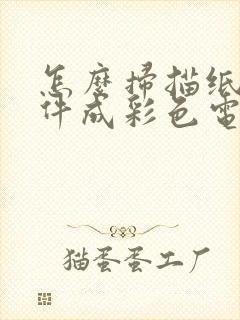 怎麼掃描纸
件成彩色電
猫蛋蛋工厂